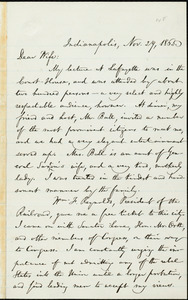 Indianapolis, Nov. 29, 1865.
Dear Wife:
My lecture at Lafayette was in the
Court House, and was attended by about
two hundred persons — a very select and highly
respectable audience, however. At dinner, my
friend and host, Mr. Ball, invited a number
of the most prominent citizens to meet me,
and we had a very elegant entertainment
served up. Mrs. Ball is an aunt of
wife, and a very kind, motherly
lady. I was treated in the kindest and most
manner by the family.
Wm. F. Reynolds, President of the
Railroad, gave me a free ticket to this city.
I came on with Senator Lane, Hon. Mr. Orth,
and other members of Congress, on their way
to Washington. I am constantly urging the
of not admitting any of the rebel
States into the Union until a longer probation,
and find leading men to accept my views.